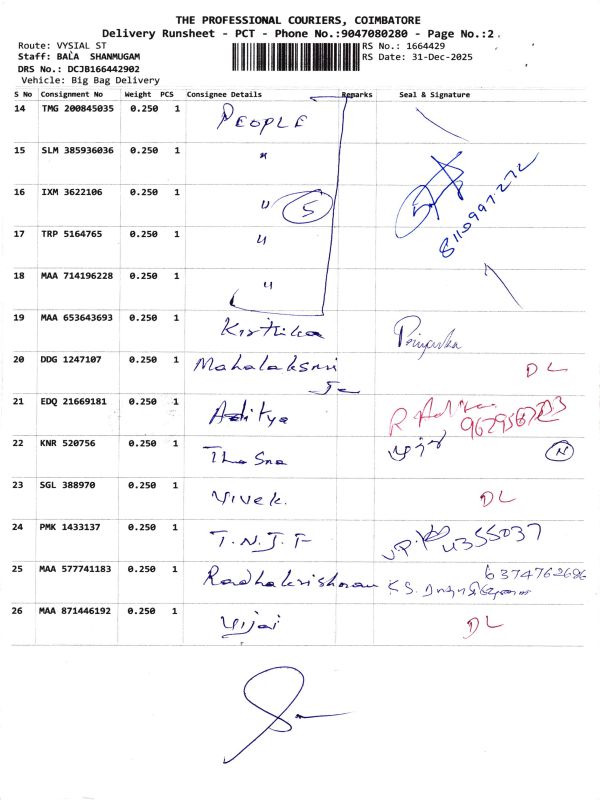 THE PROFESSIONAL COURIERS, COIMBATORE
Delivery Runsheet - PCT - Phone No.:9047080280 - Page No.:2
Route: VYSIAL ST
RS No.: 1664429
Staff: BALA SHANMUGAM
RS Date: 31-Dec-2025
DRS No.: DCJB166442902
Vehicle: Big Bag Delivery
S No Consignment No Weight PCS Consignee Details Remarks Seal & Signature
14 TMG 200845035 0.250 1 PEOPLE
15 SLM 385936036 0.250 1 "
16 IXM 3622106 0.250 1 " 5
17 TRP 5164765 0.250 1 "
18 MAA 714196228 0.250 1 "
19 MAA 653643693 0.250 1 Kirthika Priyanka
20 DDG 1247107 0.250 1 Mahalaksmi DL
21 EDQ 21669181 0.250 1 Aditya
22 KNR 520756 0.250 1 N
23 SGL 388970 0.250 1 Vivek. DL
24 PMK 1433137 0.250 1 T.N.J.F
25 MAA 577741183 0.250 1 Radhakrishnan K.S. 6374762686
26 MAA 871446192 0.250 1 Vijai DL